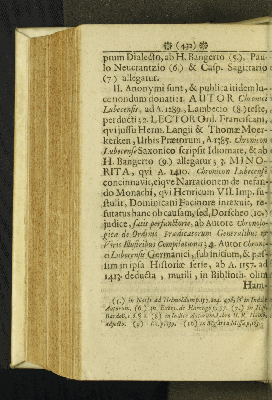 (432)
ptum Dialecto, ab H. Bangerto (5.) Pau-
lo Neucrantzio (6.) & Casp. Sagittario
(7) allegatur.
II. Anonymi sunt, & publica itidem lu-
cem nondum donati: 1. AUTOR Chronici
Lubecensis, ad A. 1289. Lambecio (8.) teste,
perducti: 2. LECTOR Ord. Franciscani,
qui jussu Herm. Langii & Thomæ Moer-
kerken, Urbis Prætorum, A. 1385. Chronicon
Lubecense Saxonico scripsit Idiomate, & ab
H. Bangerto (9.) allegatur; 3. MINO-
RITA, qui A. 1410. Chronicon Lubecense
concinnavit, eique Narrationem de nefan-
do Monachi, qui Henricum VII. Imp. su-
stulit, Dominicani Facinore intexuit, re-
futatus hanc ob causam, sed, Dorscheo (10.)
judice, satis perfunctorie, ab Autore Chronolo-
giæ de Ordinis Prædicatorum Generalibus &
Viris Illustribus Compilationis; 4. Autor Chroni-
ci Lubecensis Germanici, sub initium, & pas-
sim in ipsa Historiæ serie, ab A. 1157. ad
1413. deducta, mutili, in Biblioth. olim
Ham-